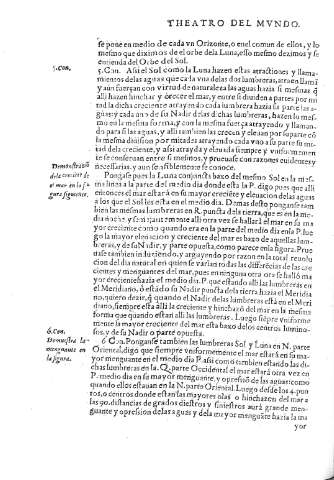 THEATRO DEL MVNDO.
se pone en medio de cada vn Orizonte, o enel comun de ellos, y lo
mesmo que diximos de el orbe dela Luna, esso mesmo dezimos y se
entienda del Orbe del Sol.
5. Con.
5. Con. Assi el Sol como la Luna hazen estas atractiones y llama-
mientos delas aguas que ca la vna delas dos lumbreras, atrae llamã
y aun fuerçan con virtud de naturaleza las aguas hazia si mesmas q̃
alli hazen hinchar y crecer el mar, y entre si dividen a partes por mi
tad la dicha creciente atrayendo cada lumbrera hazia su parte las a-
guas y cada uno de su Nadir destas dichas lumbreras, hazen lo mes-
mo en la mesma forma, y con la mesma fuerça atrayendo y llaman-
do para si las aguas, y alli tambien las crecen y elevan por su parte cõ
la mesma division por mitades atrayendo cada vno a su parte su mi-
tad dela creciente, y assi atrayda y elevada siempre y vniformemen
te se conservan entre si mesmos, y pruevase con razones evidentes y
necessarias, y aun sensiblemente se conoce.
Demostraciõ
dela creciẽte de
el mar en la fi
gura siguiente.
Pongase pues la Luna conjuncta baxo del mesmo Sol en la mes-
ma linea a la parte del medio dia donde esta la P. digo pues que alli
entonces el mar estará en su mayor creciente y elevacion delas aguas
a los que el Sol les esta en el medio dia. Demas desto pongase tam-
bien las mesmas lumbreras en R. puncta dela tierra, que es en la me-
dia noche, y semejantemente alli otra vez se hallará el mar en su ma
yor creciente como quando era en la parte del medio dia en la P. lue
go la mayor elevacion y creciente del mar es baxo de aquellas lum-
breras, y de su Nadir, y parte opuesta, como parece enla figura. Prue
vase tambien induziendo, y arguyendo por razon en la total revolu
cion del dia natural en quien se varian todas las differẽcias de las cre
cientes y menguantes del mar, pues en ninguna otra ora se halló ma
yor creciente hazia el medio dia P. que estando alli las lumbreras en
el Meridiano, ó estado su Nadir puncta dela tierra hazia el Meridia
no, quiero dezir, q̃ quando el Nadir de las lumbreras está en el Meri
diano, siempre esta alli la creciente y hinchazõ del mar en la mesma
forma que quando estan alli las lumbreras. Luego siempre vniforme
mente la mayor creciente del mar esta baxo delos centros lumino-
sos, y de su Nadir o parte opuesta.
6. Con.
Demostrá la
menguante en
la figura.
6. Con. Ponganse tambien las lumbreras Sol y Luna en N. parte
Oriental, digo que siempre vniformemente el mar estará en su ma-
yor menguante en el medio dia P. assi como tambien estando las di-
chas lumbreras en la. Q. parte Occidental el mar estará otra vez en
P. medio dia en su mayor menguante, y opression de las aguas como
quando ellos estauan en la N. parte Oriental. Luego desde los 4. pun
tos, o centros donde estan las mayores olas o hinchazen del mar a
las 90. distancias de grados diestros y siniestros aurá grande men-
guante y opression delas aguas y dela mayor menguãte hazia la ma
yor